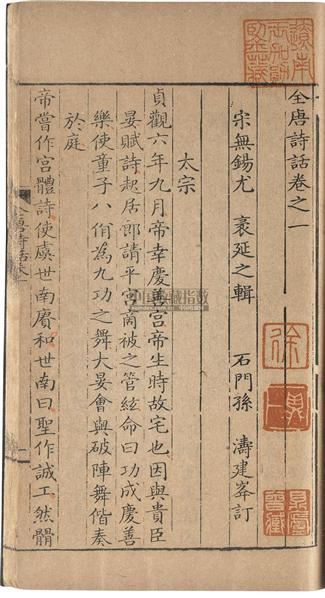 全唐詩話卷之一
宋無錫尤　袤延之輯　石門孫　濤建峯訂
太宗
貞觀六年九月帝幸慶善宮帝生時故宅也因與貴臣
晏賦詩起居郎請平宮商被之管絃命曰功成慶善
樂使童子八佾為九功之舞大宴會與破陣舞偕奏
於庭
帝嘗作宮體詩使虞世南賡和世南曰聖作誠工然體